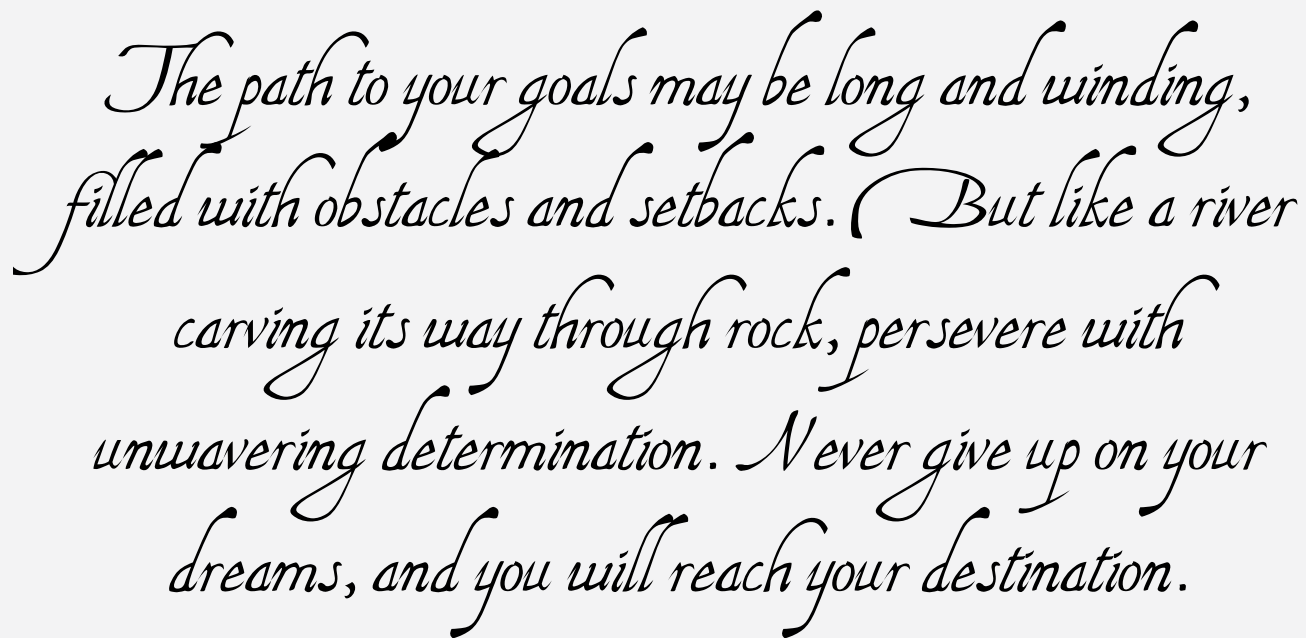 The path to your goals may be long and winding,
filled with obstacles and setbacks. But like a river
carving its way through rock, persevere with
unwavering determination. Never give up on your
dreams, and you will reach your destination.